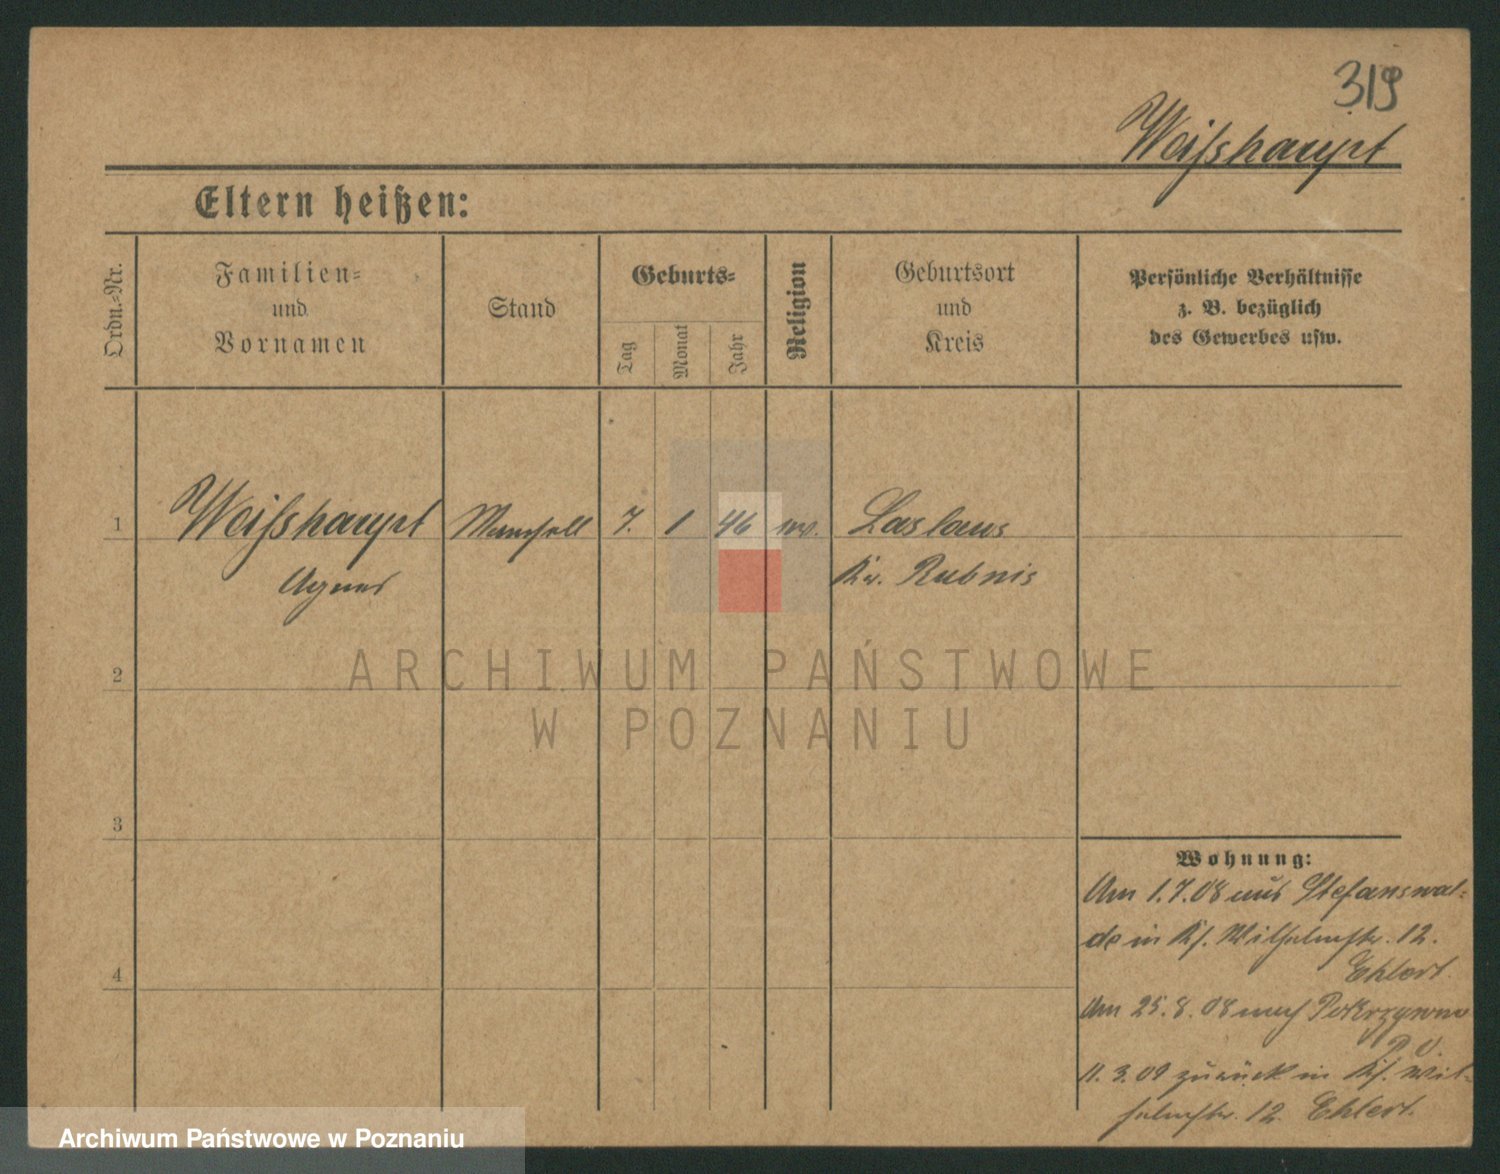 319
Weiſshaupt
Eltern heißen:
Ordn.-Nr.
Familien-
und
Vornamen
Stand
Geburts-
Tag
Monat
Jahr
Religion
Geburtsort
und
Kreis
Persönliche Verhältnisse
z. B. bezüglich
des Gewerbes usw.
1
Weiſshaupt
Agnes
Mamsell
7.
1
46
Laslaws
Kr. Rubnis
2
3
4
ARCHIWUM PAŃSTWOWE
W POZNANIU
Wohnung:
Am 1.7.08 aus Stefanswal-
de in Wilhelmstr. 12.
Ehlert
Am 25.8.08 nach Pokrzywno
P. O.
11.3.09 zurück in Wil-
helmstr. 12 Ehlert.
Archiwum Państwowe w Poznaniu